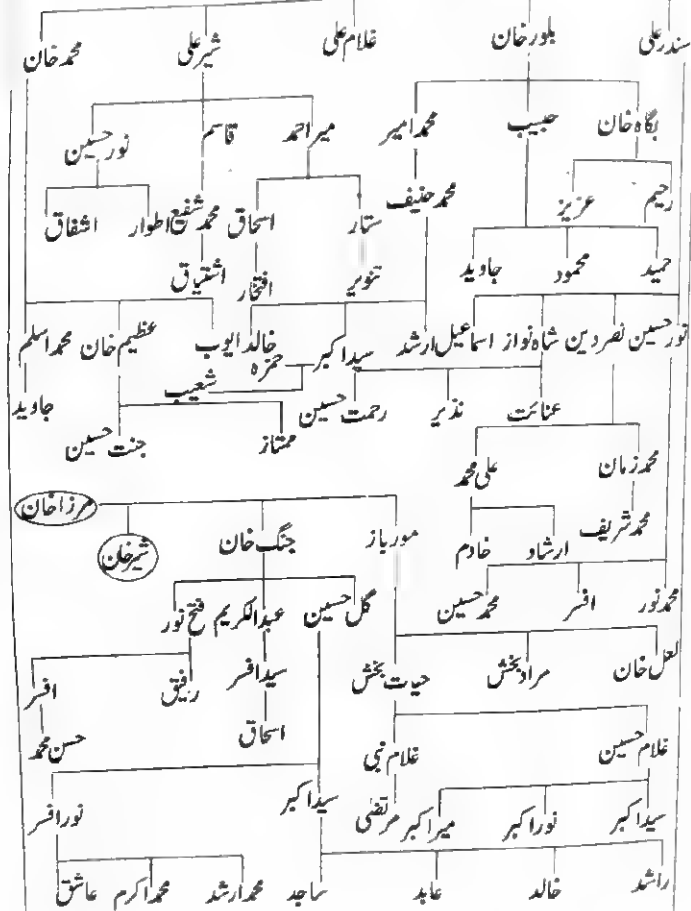 سندر علی بلور خان غلام علی شیر علی محمد خان
بگاہ خان حبیب محمد امیر میر احمد قاسم نور حسین
رحیم عزیز محمد حنیف ستار اسحاق محمد شفیع اطوار اشفاق
حمید محمود جاوید تنویر افتخار اشتیاق
نور حسین نصر دین شاہ نواز اسماعیل ارشد سید اکبر خالد ایوب عظیم خان محمد اسلم
حمزہ
شعیب
عنائت نذیر رحمت حسین جاوید
ممتاز جنت حسین
محمد زمان علی محمد
مرزا خان
محمد شریف ارشاد خادم مور باز جنگ خان شیر خان
محمد نور افسر محمد حسین گل حسین عبدالکریم فتح نور
لعل خان مراد بخش حیات بخش سید افسر رفیق افسر
غلام حسین غلام نبی اسحاق حسن محمد
سید اکبر نور اکبر میر اکبر مرتضیٰ سید اکبر نور افسر
راشد خالد عابد ساجد محمد ارشد محمد اکرم عاشق